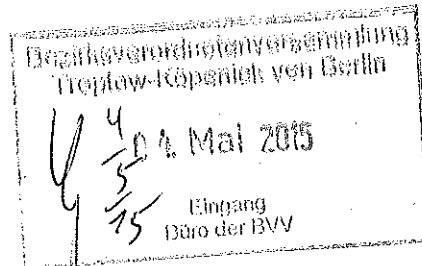 Bezirksverordnetenversammlung
Treptow-Köpenick von Berlin
04. Mai 2015
4/5/15
Eingang
Büro der BVV